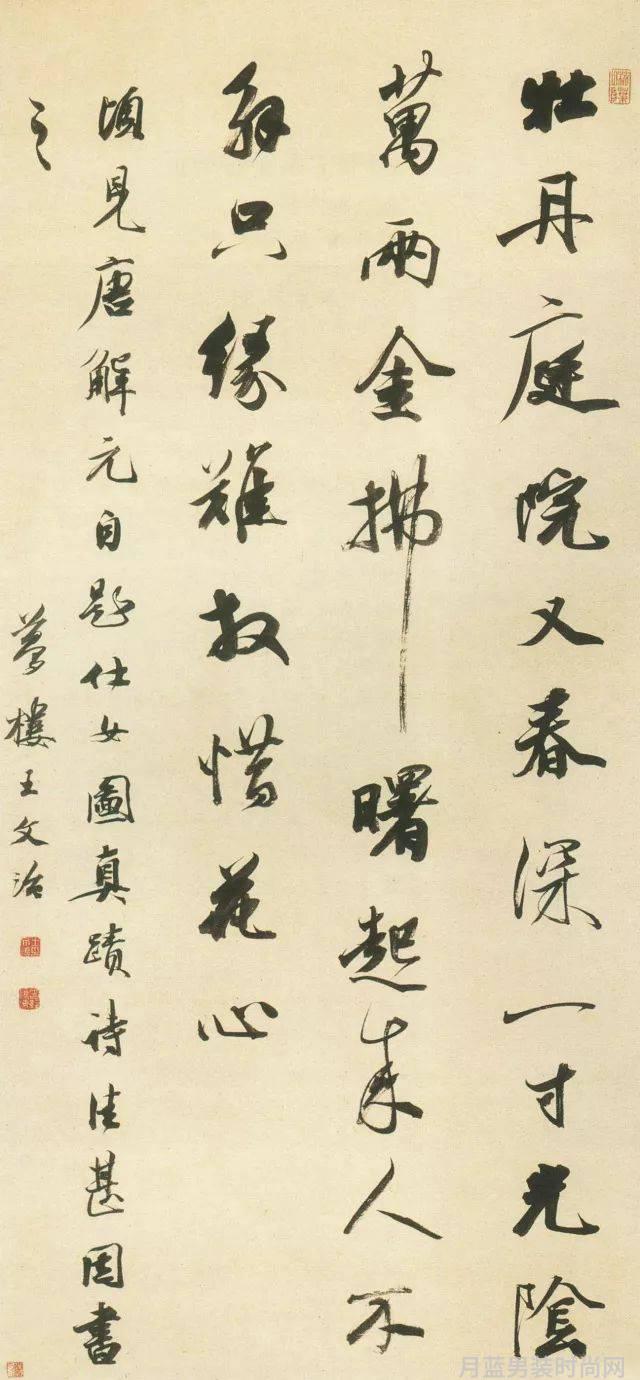 牡丹庭院又春深一寸光陰
萬兩金拂曙起來人不
解只緣難放惜花心
頃見唐解元自題仕女圖真蹟詩佳甚因書
之
夢樓王文治
月蓝男装时尚网